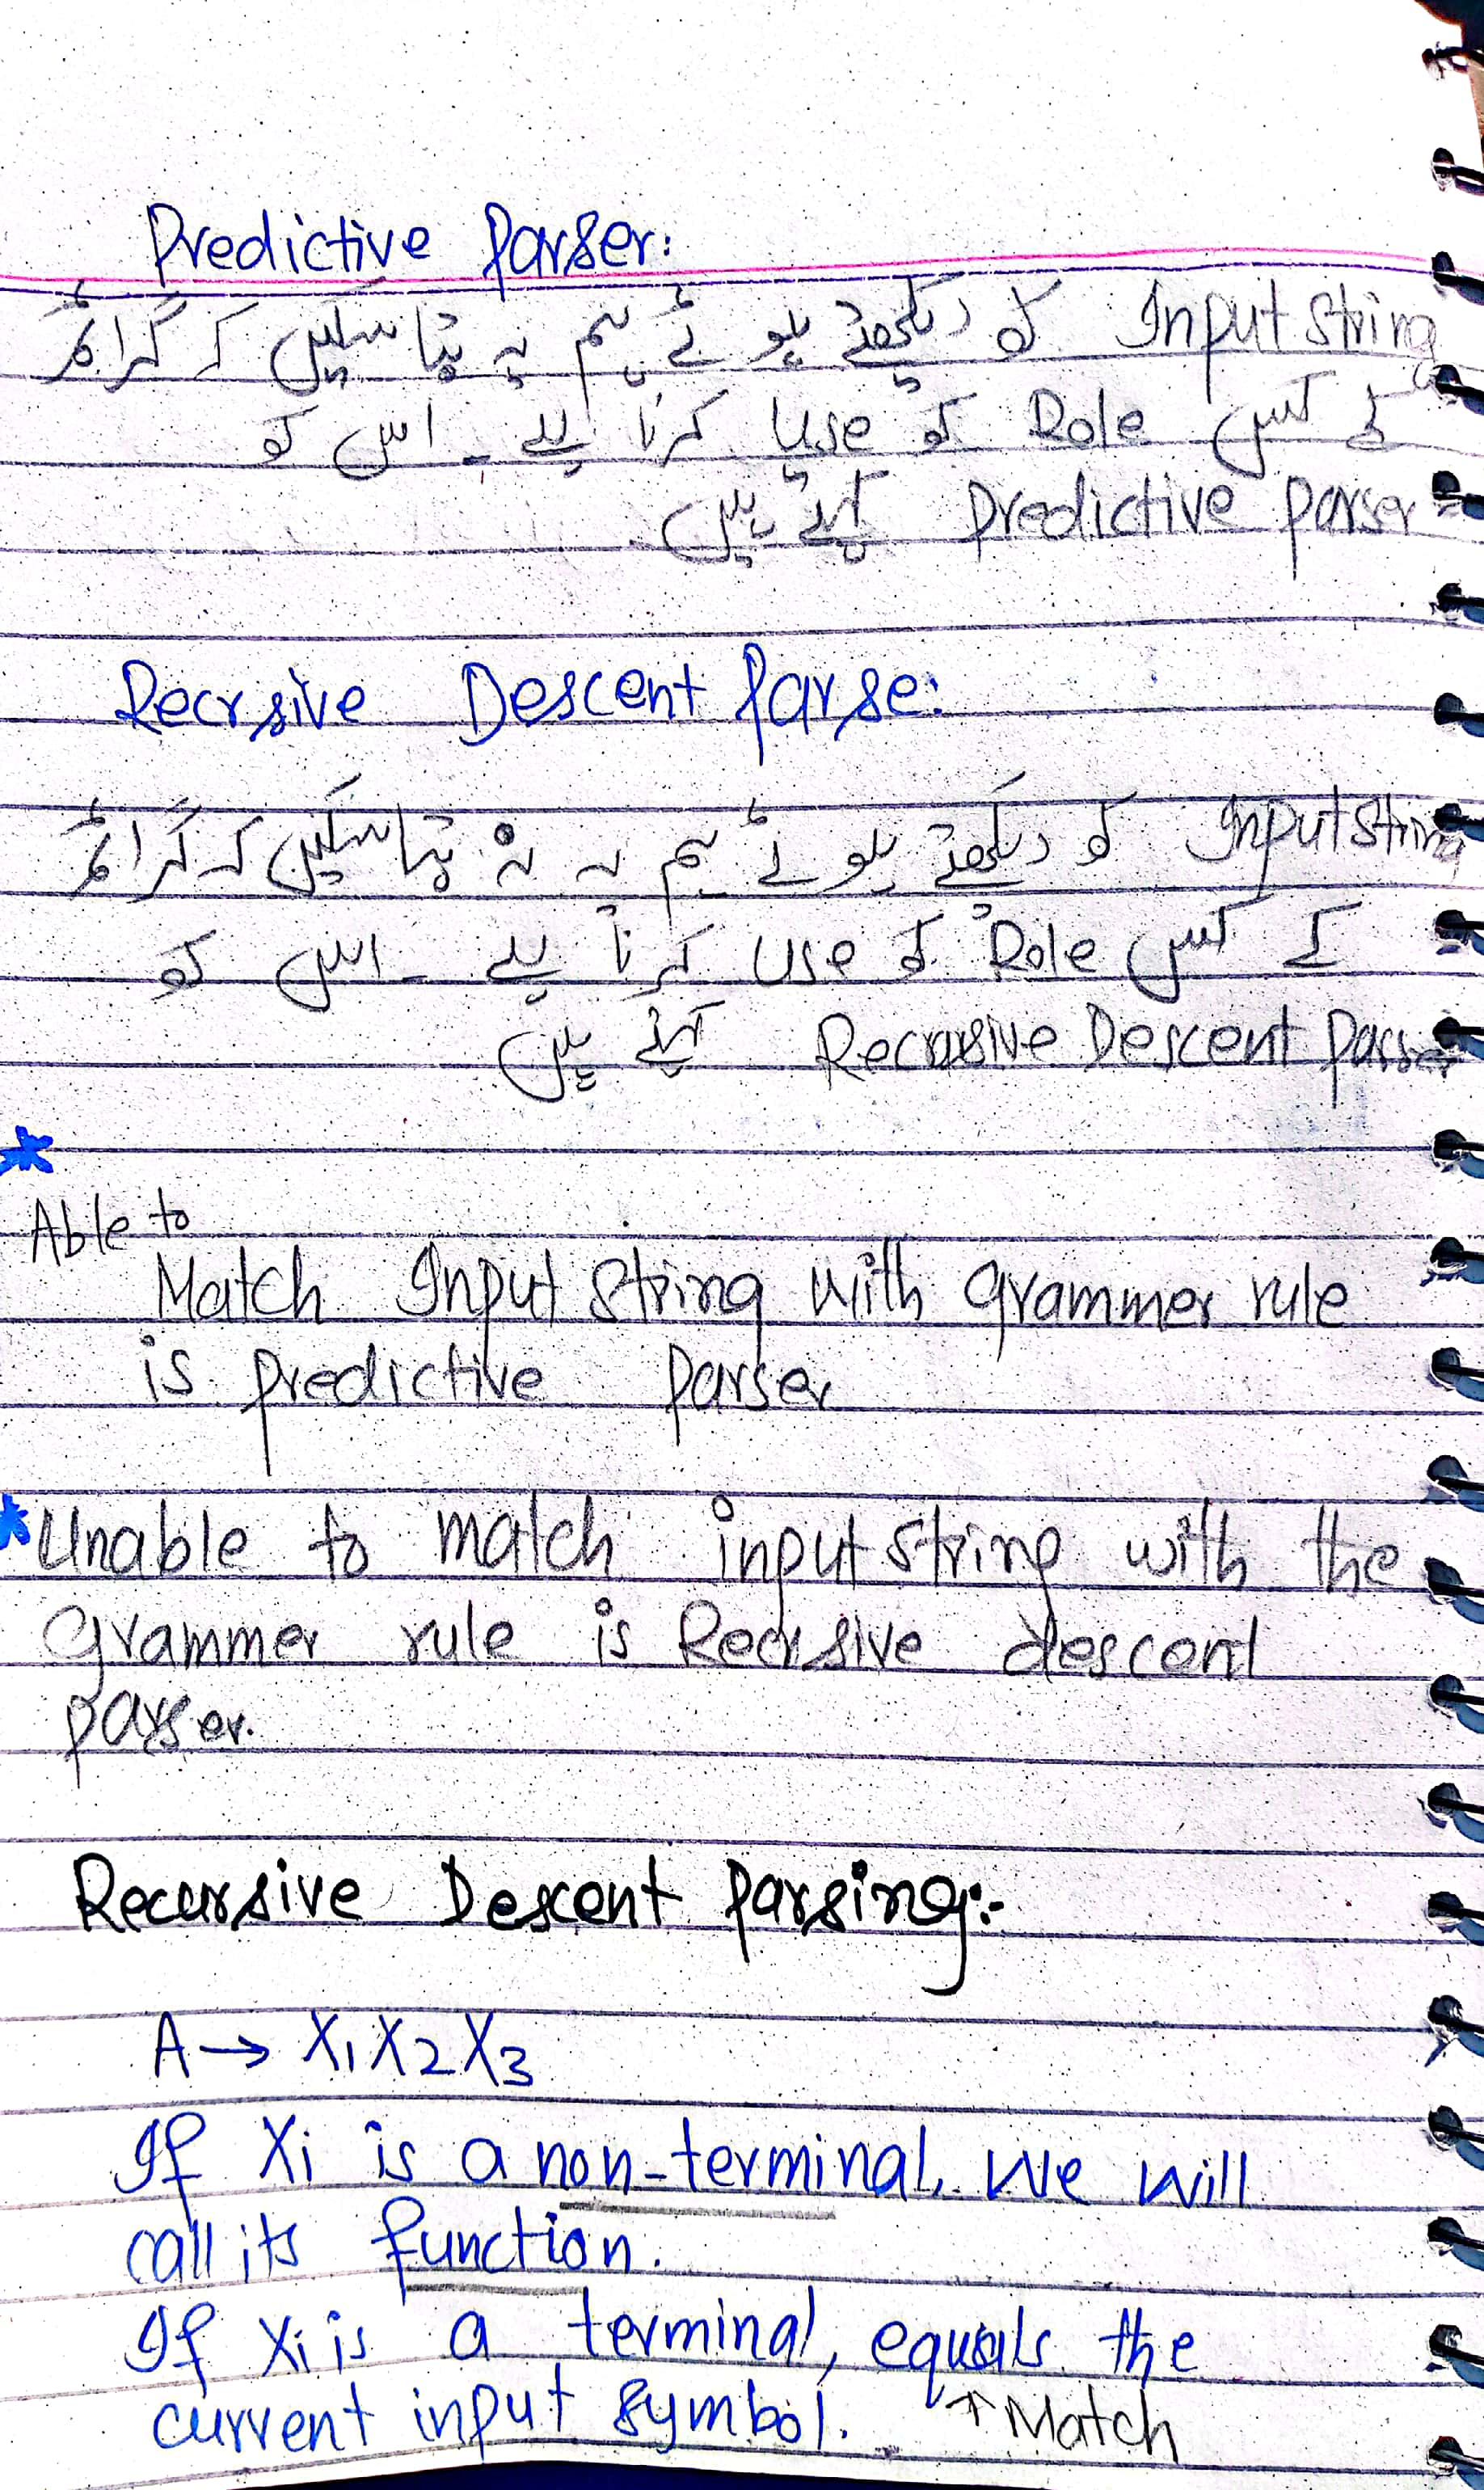 Predictive Parser:
Input String کو دیکھتے ہوئے ہم یہ بتا سکیں کہ گرائمر
کے کس Role کو Use کرنا ہے۔ اس کو
Predictive parser کہتے ہیں.
Recrsive Descent Parse:
Input String کو دیکھتے ہوئے ہم یہ نہ بتا سکیں کہ گرائمر
کے کس Role کو use کرنا ہے۔ اس کو
Recursive Descent Parser کہتے ہیں
*
Able to
Match Input String with grammer rule
is predictive Parser
*Unable to match input string with the
grammer rule is Recrsive descent
parser.
Recursive Descent Parsing:-
A → X1 X2 X3
If Xi is a non-terminal, We will
call its function.
If Xi is a terminal, equals the
current input symbol. ↑ Match